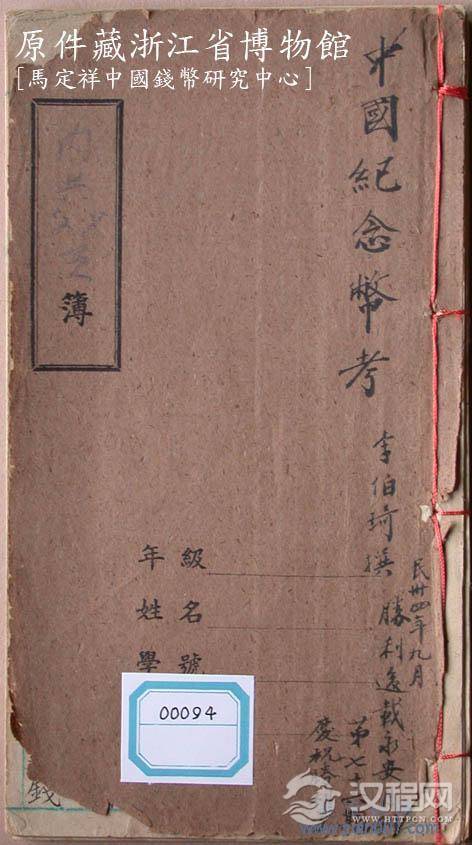 原件藏浙江省博物館
[馬定祥中國錢幣研究中心]
中國紀念幣考
李伯琦撰
民卅四年九月
勝利逸載永安
第七十
慶祝
簿
年級
姓名
學號
00094
錢
汉程网
WWW.HTTPCN.COM